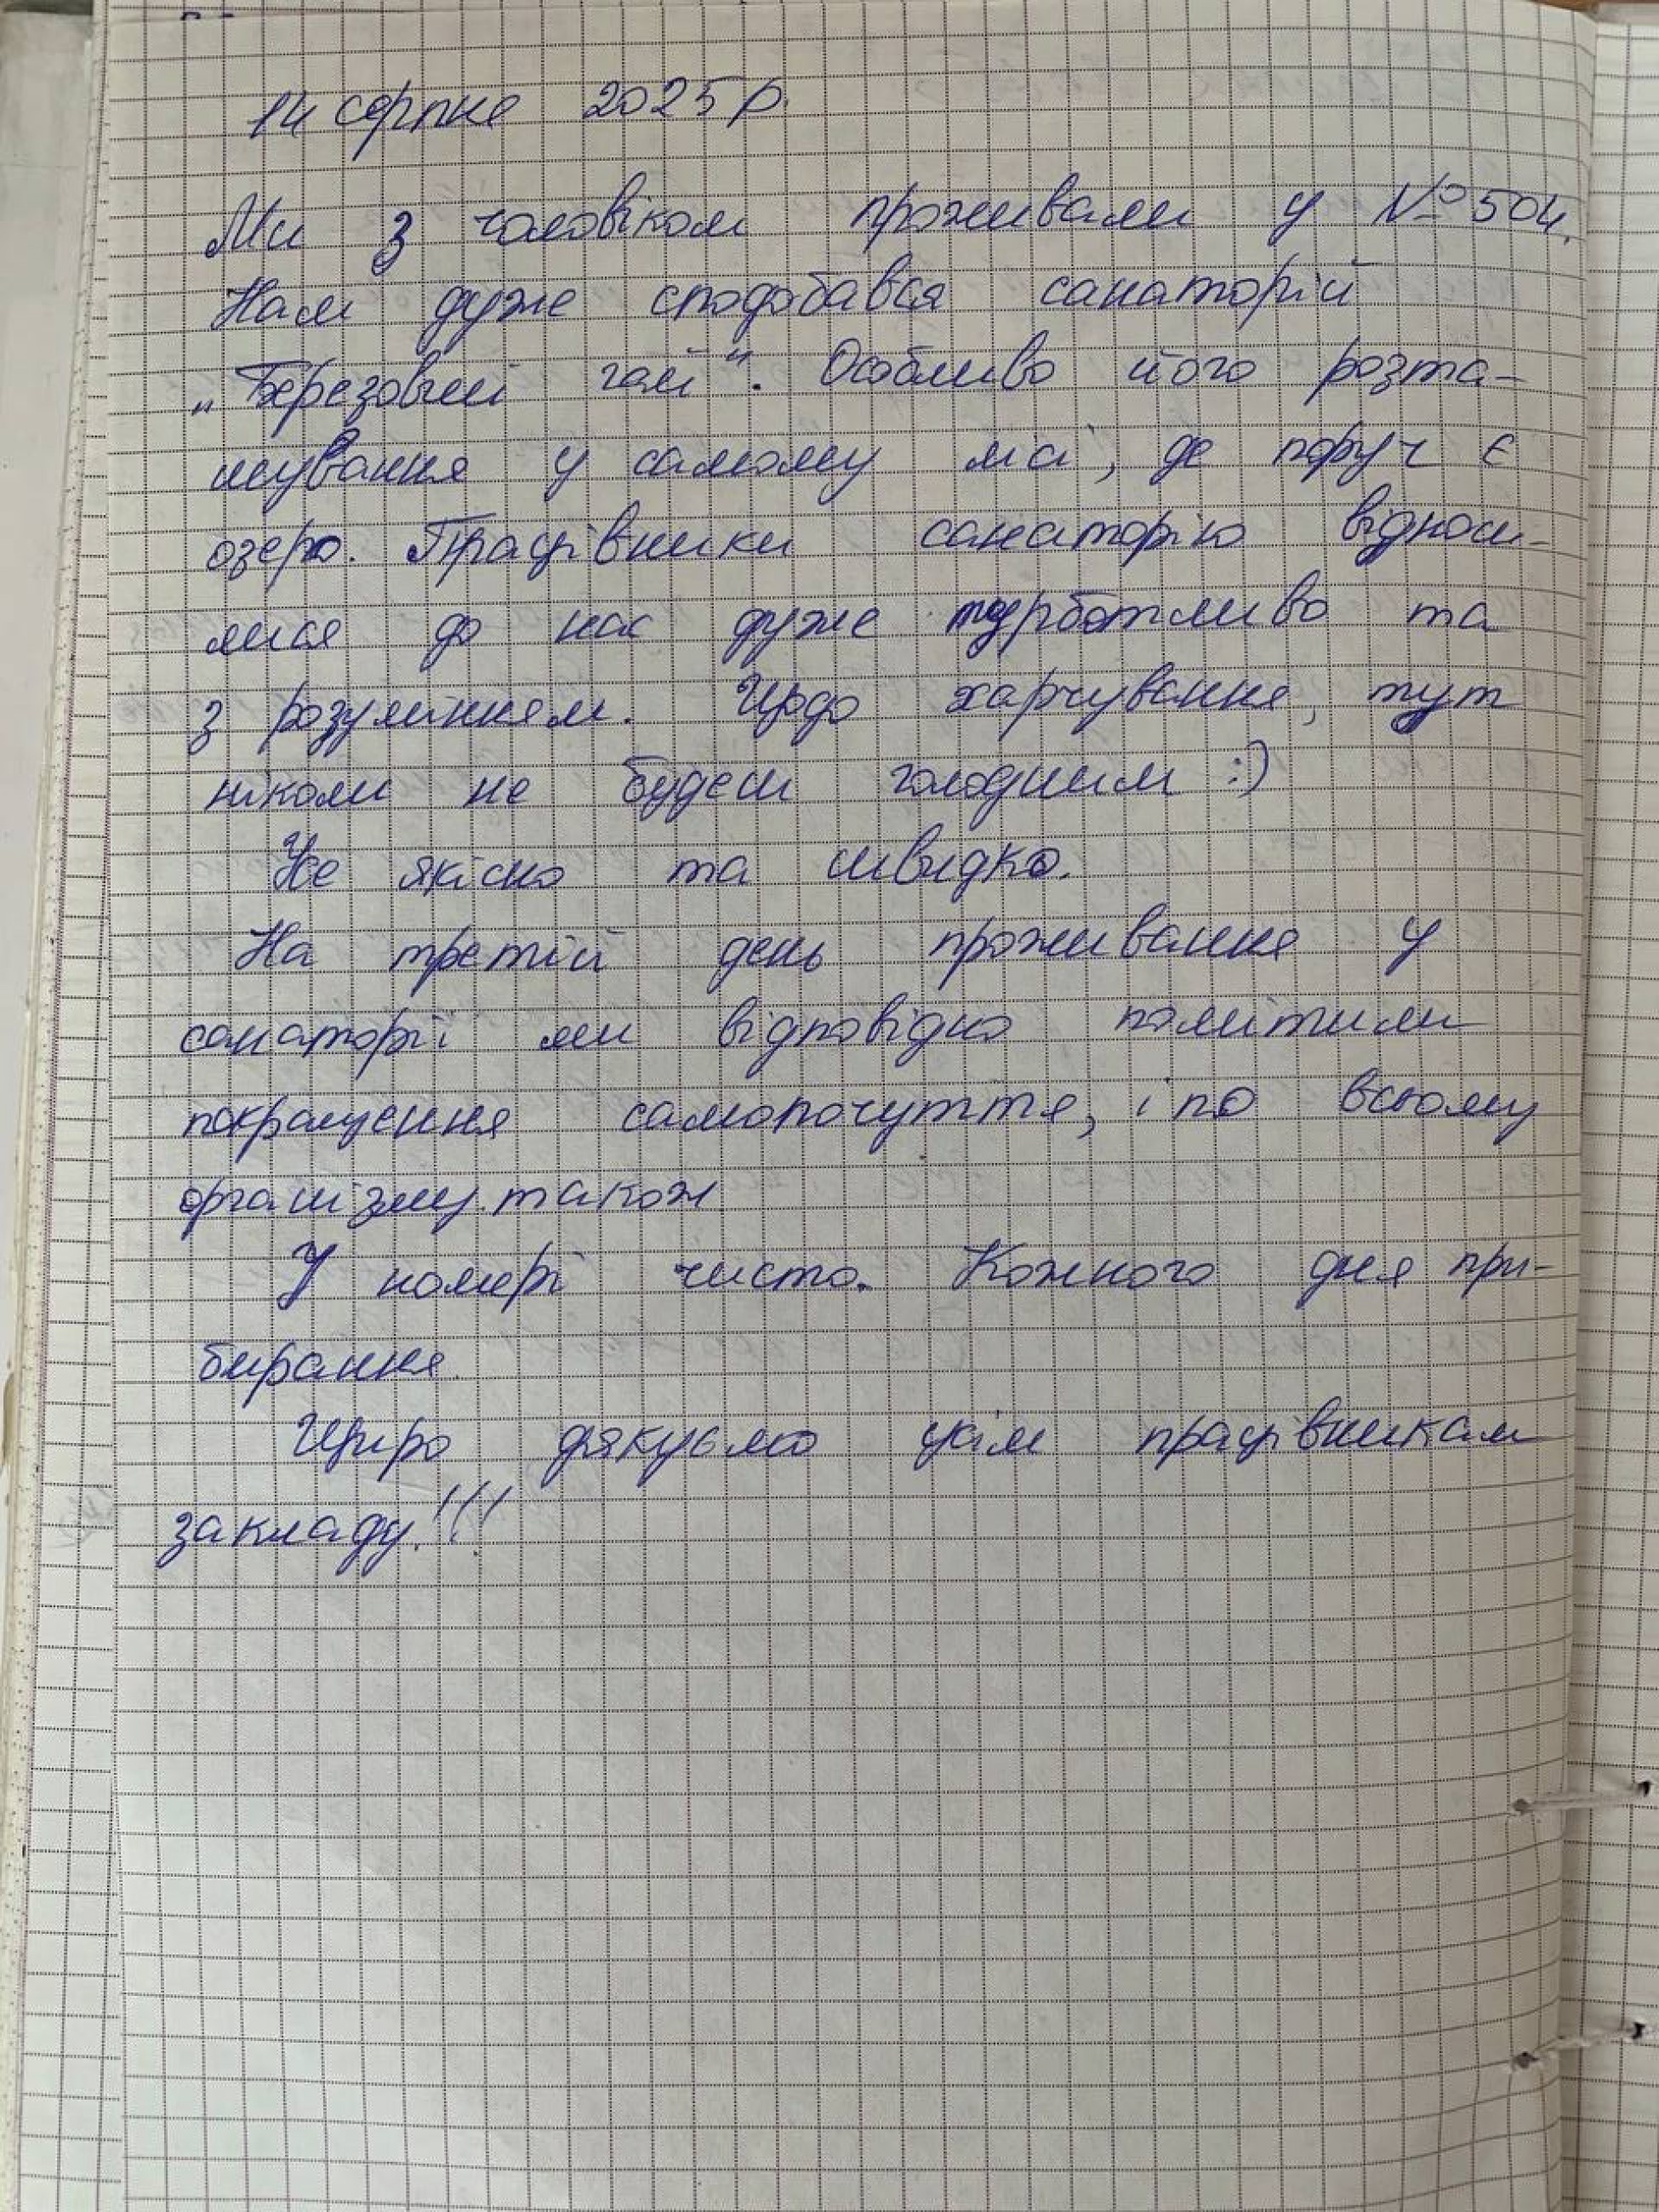 14 серпня 2025 р.
Ми з чоловіком проживали у № 504.
Нам дуже сподобався санаторій
„Березовий гай". Особливо його розта-
шування у самому лісі, де поруч є
озеро. Працівники санаторію відноси-
лися до нас дуже турботливо та
з розумінням. Щодо харчування, тут
ніколи не будеш голодним :)
Усе якісно та швидко.
На третій день проживання у
санаторії ми відповідно помітили
покращення самопочуття, і по всьому
організму також
У номері чисто. Кожного дня при-
бирання.
Щиро дякуємо усім працівникам
закладу!!!